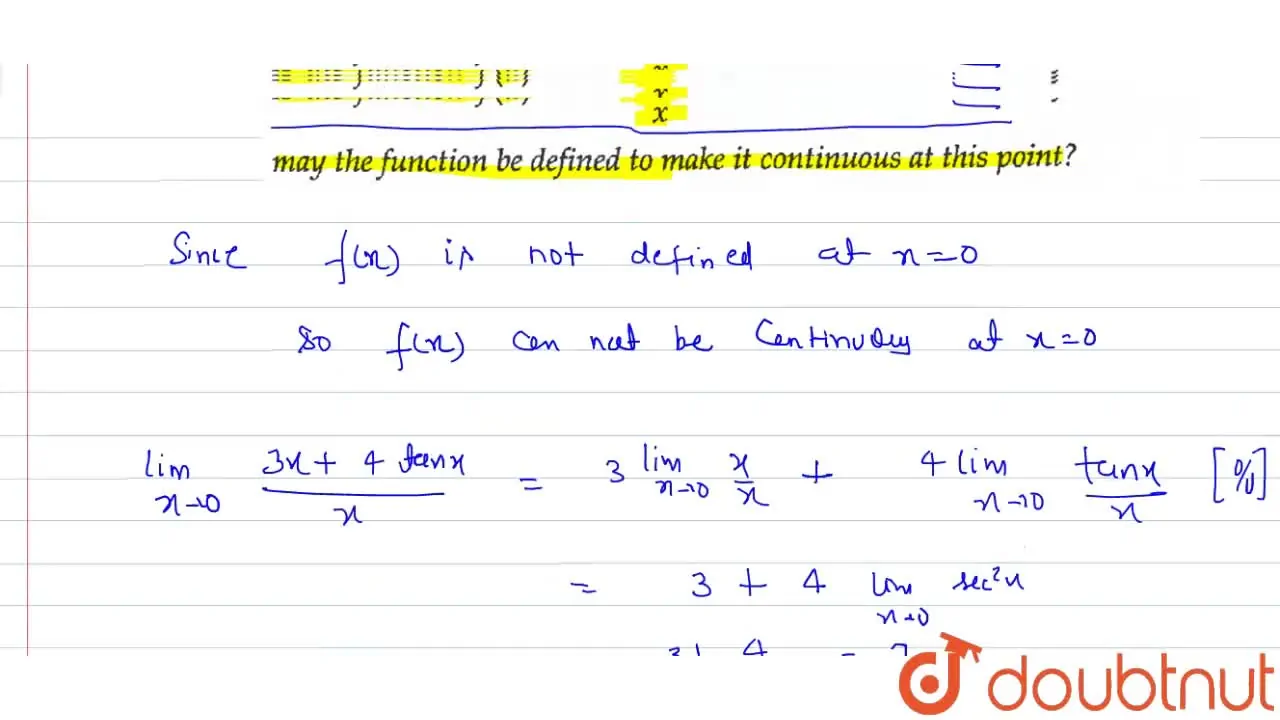 x
may the function be defined to make it continuous at this point?
Since f(x) is not defined at x=0
So f(x) can not be at x=0
lim x→0 (3x + 4 tanx)/x = 3 lim x→0 x/x + 4 lim x→0 tanx/x [0/0]
= 3 + 4 lim x→0 sec²x
3+ 4 = 7
doubtnut